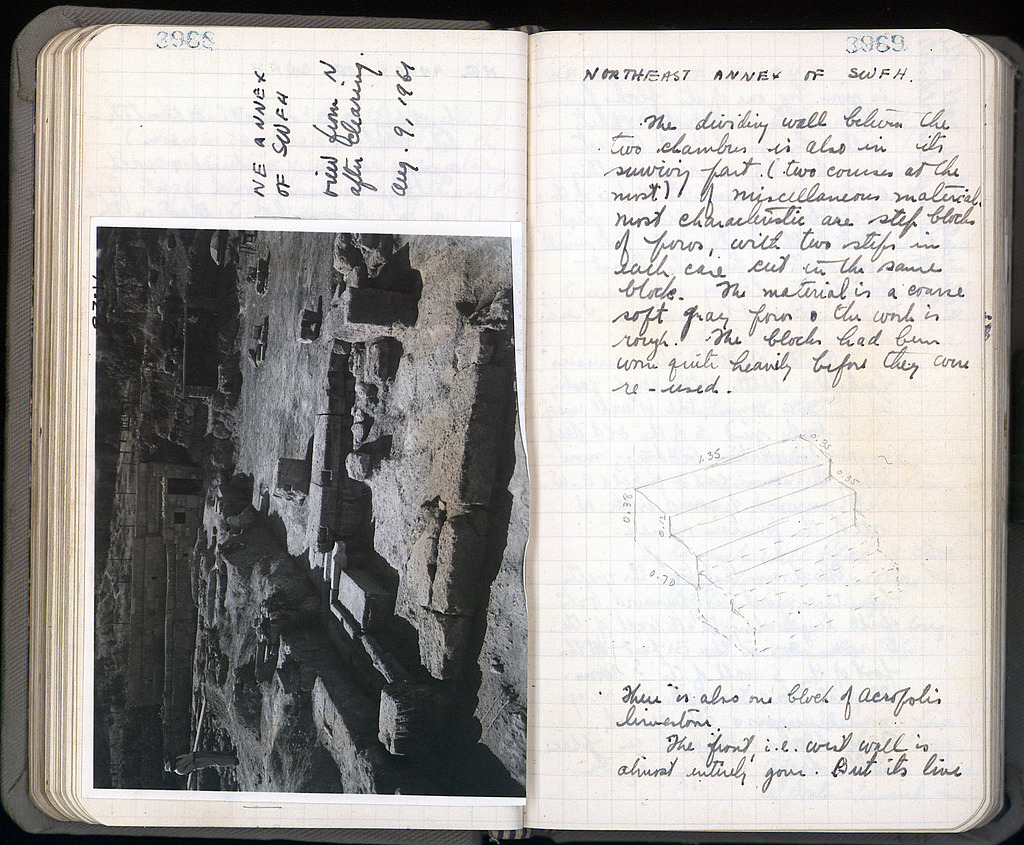 3968
NE ANNEX
OF SWFH
view from N
after clearing
Aug. 9, 1961
3969
NORTHEAST ANNEX OF SWFH.
The dividing wall between the
two chambers is also in its
surviving part (two courses at the
most) of miscellaneous material.
most characteristic are step blocks
of poros, with two steps in
each case cut in the same
block. The material is a coarse
soft gray poros & the work is
rough. The blocks had been
worn quite heavily before they were
re-used.
1.35
0.35
0.35
0.38
0.12
0.70
There is also one block of Acropolis
limestone.
The front, i.e. west wall is
almost entirely gone. But its line